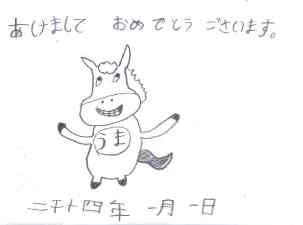 あけまして おめでとう ございます。
うま
二千十四年 一月 一日